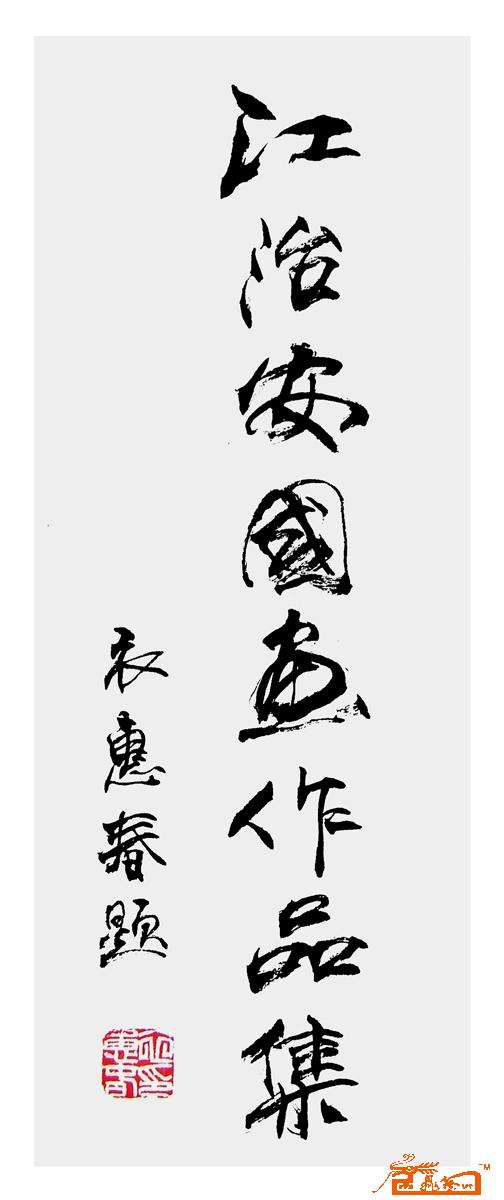 江治安國画作品集
衣惠春题